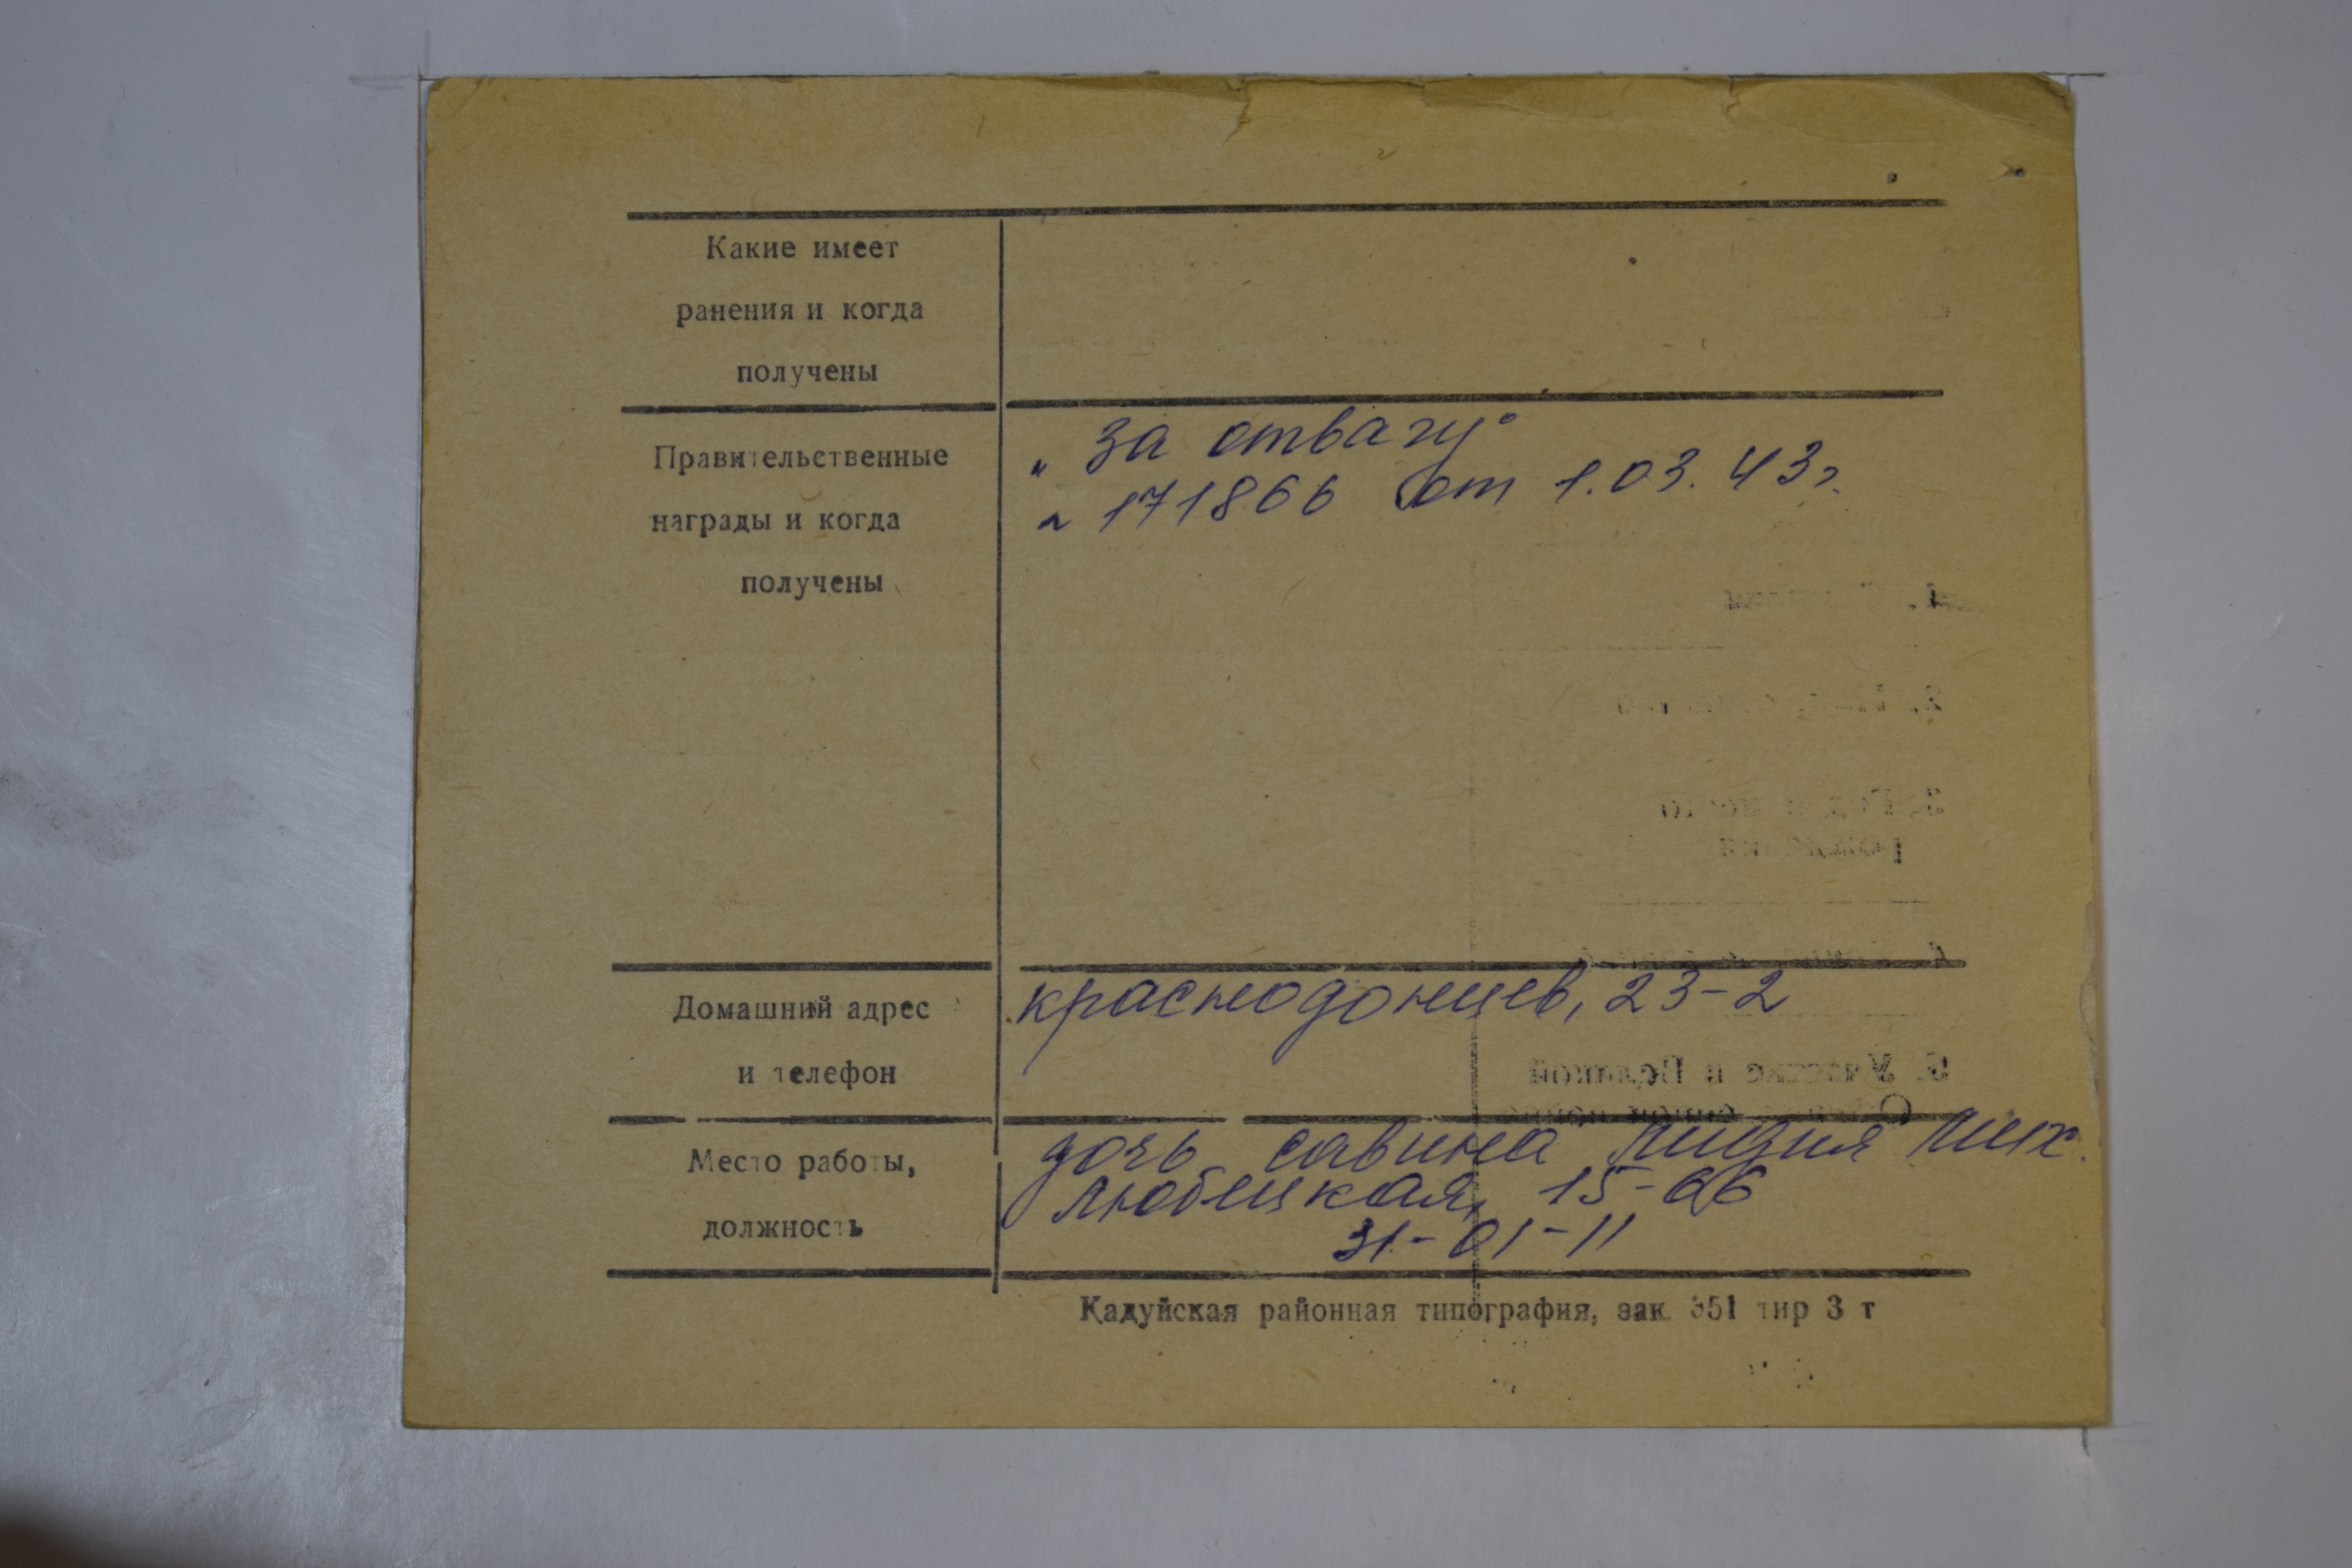 Какие имеет
ранения и когда
получены
Правительственные
награды и когда
получены
„За отвагу"
171866 от 1.03.43г.
Домашний адрес
и телефон
краснодонцев, 23-2
Место работы,
должность
дочь савина Лидия Мих.
Любецкая, 15-66
31-01-11
Кадуйская районная типография, зак. 351 тир 3 т
5. Участие в Великой